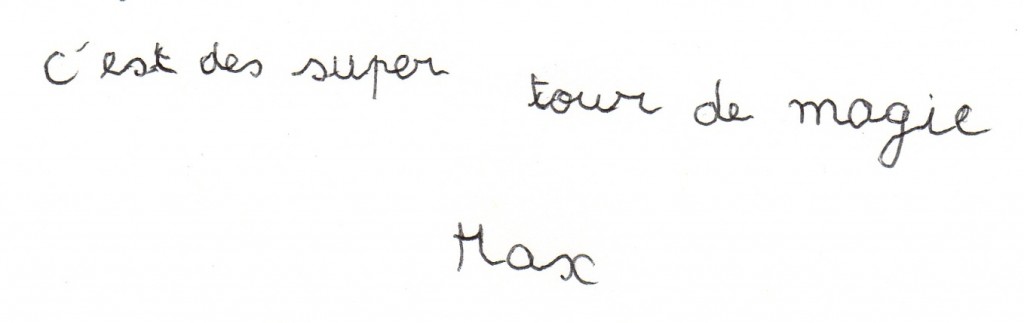 c'est des super tour de magie
Max